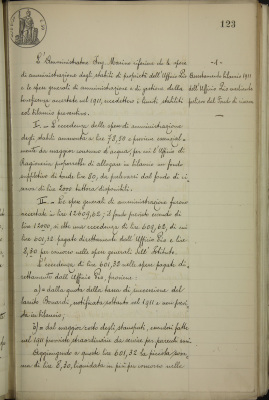 123
L'Amministratore Ing. Marino riferisce che le spese
di amministrazione degli stabili di proprietà dell'Ufficio Pio
e le spese generali di amministrazione e di gestione della
beneficenza accertate nel 1911, eccedettero i limiti stabiliti
nel bilancio preventivo.
-1-
bilancio 1911
dell'Ufficio Pio mediante
prelievo dal Fondo di riserva
I°. - L'eccedenza delle spese di amministrazione
degli stabili ammonta a lire 78,38 e proviene essenzial-
mente da maggior consumo d'acqua; per cui l'Ufficio di
Ragioneria proporrebbe di allegare in bilancio un fondo
suppletivo di tonde lire 80, da prelevarsi dal fondo di ri-
serva di lire 2000 tuttora disponibili.
II°. - Le spese generali di amministrazione furono
accertate in lire 12609,62; il fondo previsto essendo di
lire 12000, si ebbe una eccedenza di lire 609,62, di cui
lire 601,32 pagate direttamente dall'Ufficio Pio e lire
8,30 per concorso nelle spese generali dell'Istituto.
L'eccedenza di lire 601,32 nelle spese pagate di-
rettamente dall'Ufficio Pio, proviene:
a) = dalla quota della tassa di successione del
lascito Bonardi, notificata soltanto nel 1911 e non previ-
sta in bilancio;
b) = dal maggior costo degli stampati, essendosi fatte
nel 1911 provviste straordinarie da servire per parecchi anni.
Aggiungendo a queste lire 601,32 la piccola som-
ma di lire 8,30, liquidata in più per concorso nelle